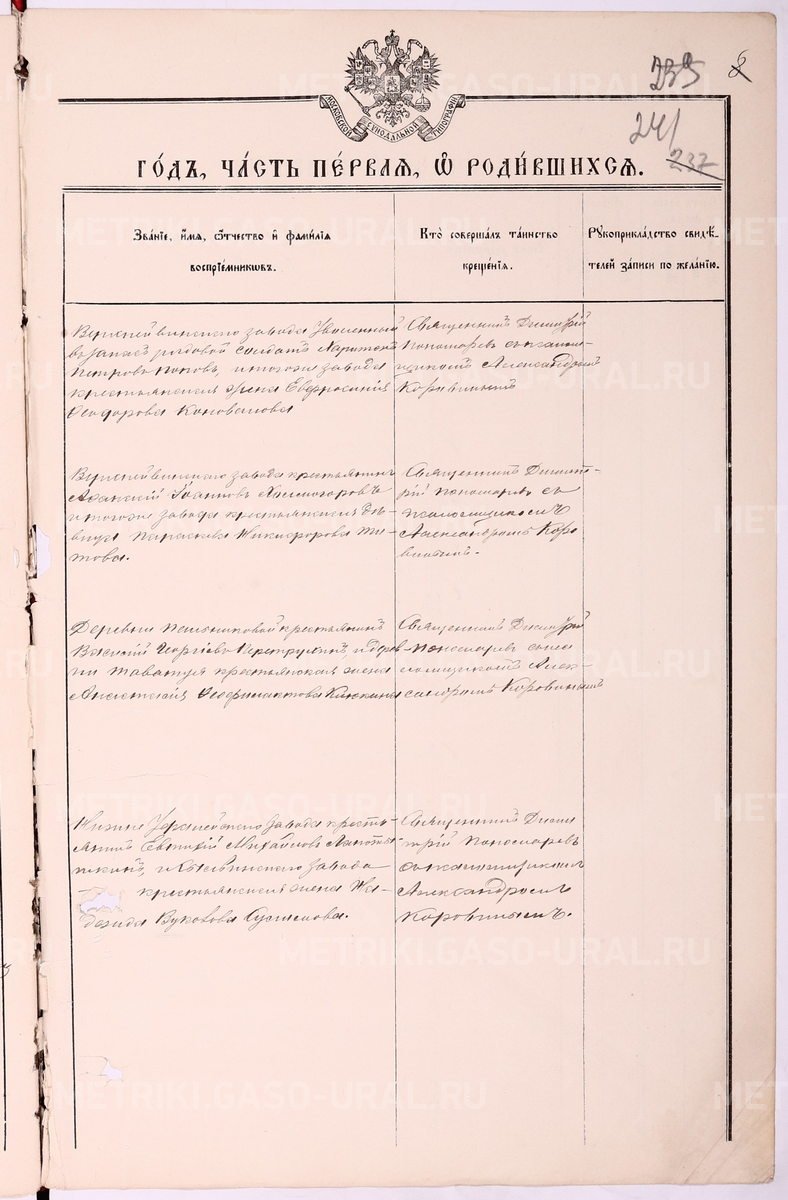 МОСКОВСКОЙ СѴНОДАЛЬНОЙ ТИПОГРАФІИ
235
8
241
237
ГОДЪ, ЧАСТЬ ПЕРВАЯ, Ѡ РОДИВШИХСЯ.
Званіе, имя, ѿчество и фамилія
воспріемниковъ.
Кто совершалъ таинство
крещенія.
Рукоприкладство свидѣ-
телей записи по желанію.
завода Уволенный
въ запасъ рядовой солдатъ Харитонъ
Петровъ Поповъ, и тогоже завода
крестьянская жена Евфросинія
Ѳеодорова Коновалова
Священникъ Димитрій
Пономаревъ съ псалом-
щикомъ Александромъ
Коровинымъ
завода крестьянинъ
Іоанновъ Холмогоровъ
и тогоже завода крестьянская дѣ-
вица Параскева Никифорова Ти-
това.
Священникъ Димит-
рій Пономаревъ съ
псаломщикомъ
Александромъ Коро
винымъ.
Деревни крестьянинъ
Василій Георгіевъ и дерев
ни Таватуя крестьянская жена
Анастасія Ѳеофилактова
Священникъ Димитрій
Пономаревъ съ пса
ломщикомъ Алек-
сандромъ Коровинымъ
Нижне завода кресть-
янинъ Евтихій Михайловъ
и завода
крестьянская жена На-
дежда Вуколова
Священникъ Дими
трій Пономаревъ
съ псаломщикомъ
Александромъ
Коровинымъ.
METRIKI.GASO-URAL.RU